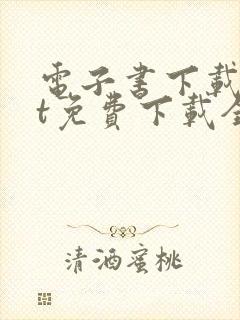 電子書下載
t免費下載全
清酒蜜桃